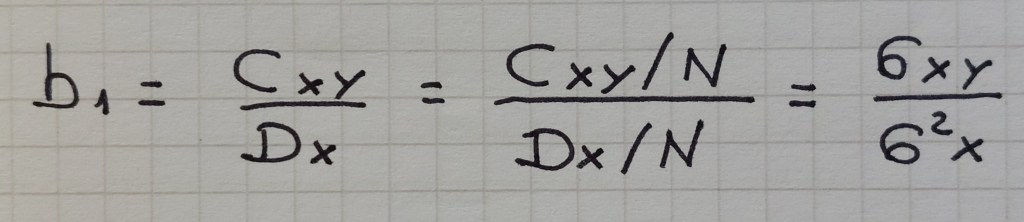 b₁ = Cxy / Dx = (Cxy/N) / (Dx/N) = σxy / σ²x